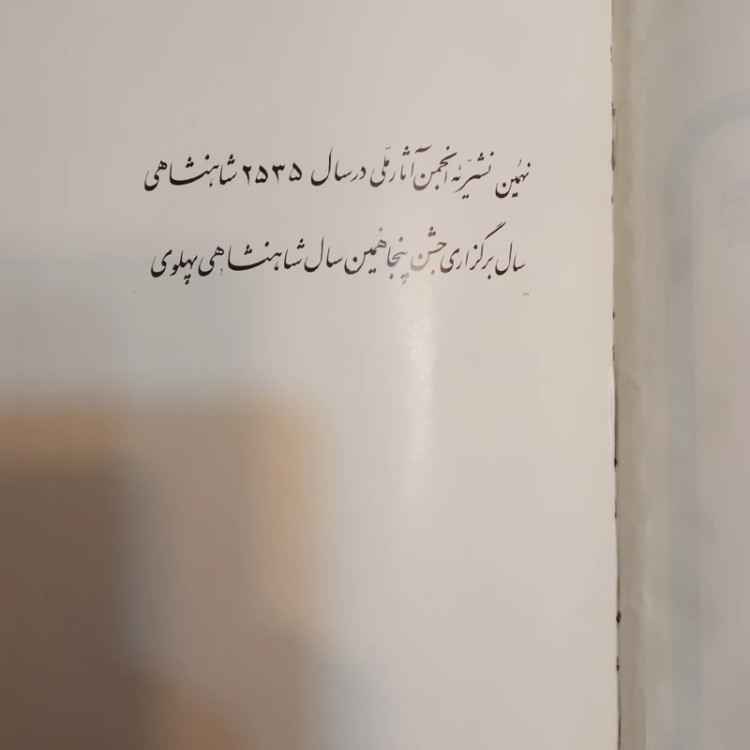 نهمین نشریهٔ انجمن آثار ملّی در سال ۲۵۳۵ شاهنشاهی
سال برگزاری جشن پنجاهمین سال شاهنشاهی پهلوی